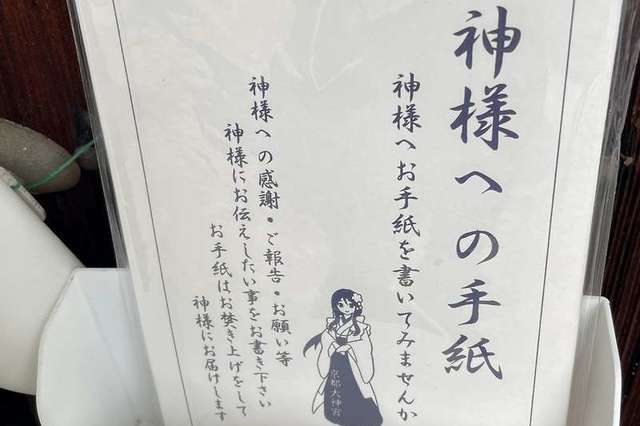 神様への手紙
神様へお手紙を書いてみませんか
神様への感謝・ご報告・お願い等
神様にお伝えしたい事をお書き下さい
お手紙はお焚き上げをして
神様にお届けします
京都大神宮